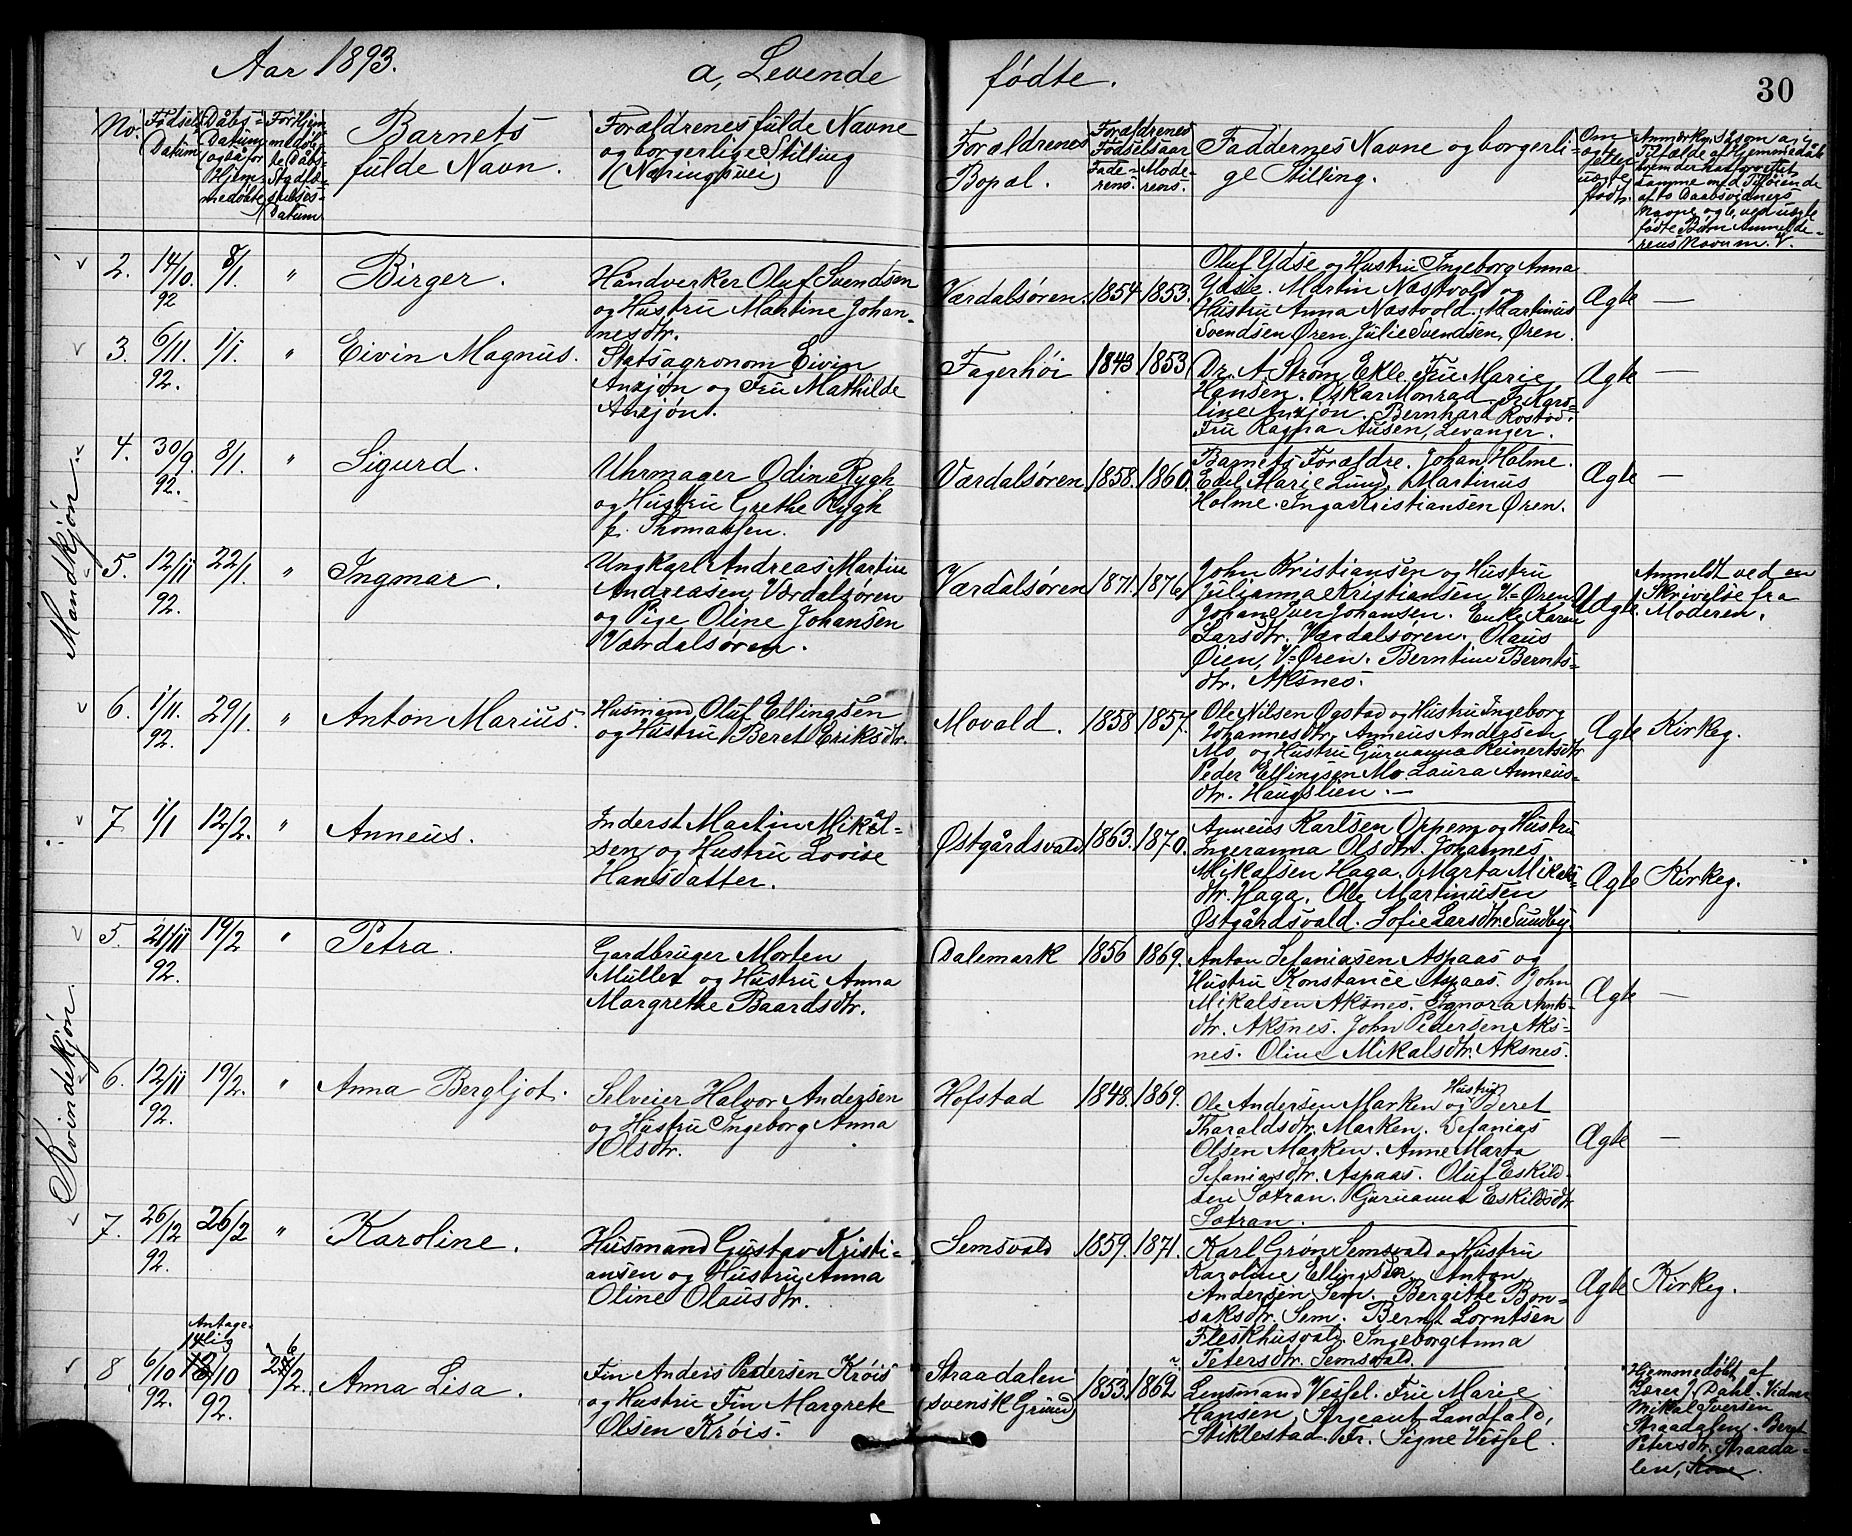 Aar 1893.
a, Levende
fødte.
30
No.
Fødsels
Datum
Dåbs-
Datum
Barnets
fulde Navn.
Forældrenes fulde Navne
og borgerlige Stilling
(Næringsvei)
Forældrenes
Bopæl.
Forældrenes
Fødselsaar
Fade-
rens.
Mode-
rens.
Faddernes Navne og borgerli-
ge Stilling.
Om
ægte
eller
uægte
født.
Mandkjøn.
2. 14/10. 92 8/1. " Birger.
Håndverker Oluf Svendsen
og Hustru Martine Johan-
nesdtr.
Værdalsøren. 1854 1853.
Oluf Ydse og Hustru Ingeborg Anna
Ydse. Martin Næstvold og
Hustru Anna Næstvold. Martinus
Svendsen Øren. Julie Svendsen, Øren.
Ægte —
3. 6/11. 92. 1/1. " Eivin Magnus.
Statsagronom Eivin
Anxjøn og Fru Mathilde
Anxjøn.
Fagerhøi 1843 1853
Dr. A Strøm, Ekle. Fru Marie
Hansen. Oskar Monrad.
line Anxjøn. Bernhard Rostad.
Fru Ragna Ausen, Levanger.
Ægte —
4. 30/9 92. 8/1. " Sigurd.
Uhrmager Odin Rygh
og Hustru Grethe Rygh
f. Thomassen.
Værdalsøren 1858. 1860.
Barnets Forældre. Johan Holme.
Edel Marie Lund, Martinus
Holme. Inga Kristiansen Øren.
Ægte —
5. 12/11 92. 22/1. " Ingmar.
Ungkarl Andreas Martin
Andreasen, Værdalsøren
og Pige Oline Johansen
Værdalsøren.
Værdalsøren 1871. 1876
John Kristiansen og Hustru
Julianna Kristiansen V=Øren
Johan Iver Johansen. Enke Karen
Larsdtr. Værdalsøren. Olaus
Øien, V=Øren. Berntine Bernts-
dtr. Aksnes.
Uægte.
Anmeldt ved en
Skrivelse fra
Moderen.
6. 1/11. 92. 29/1. " Anton Marius.
Husmand Oluf Ellingsen
og Hustru Beret Eriksdtr.
Movald. 1858 1857.
Ole Nilsen Øgstad og Hustru Ingeborg
Johannesdtr. Anneus Andersen
Mo og Hustru Guruanna Reinertsdtr
Peder Ellingsen Mo. Laura Anneus-
dtr. Haugslien. —
Ægte Kirkeg.
7 1/1 12/2. " Anneus.
Inderst Martin Mikal-
sen og Hustru Lovise
Hansdatter.
Østgårdsvald 1863. 1870.
Anneus Karlsen Oppem og Hustru
Ingeranna Olsdtr. Johannes
Mikalsen Haga. Marta Mikals-
dtr. Haga. Ole Martinussen
Østgårdsvald. Sofie Larsdtr. Sundby.
Ægte Kirkeg.
Kvindekjøn.
5. 21/11 92. 19/2 " Petra.
Gardbruger Morten
Müller og Hustru Anna
Margrethe Baardsdtr.
Dalemark 1856 1869.
Anton Sefaniasen Aspaas og
Hustru Konstance Aspaas. John
Mikalsen Aksnes. Ignora Arnts-
dtr. Aksnes. John Pedersen Aks-
nes. Oline Mikalsdtr. Aksnes.
Ægte —
6. 12/11 92. 19/2. " Anna Bergljot.
Selveier Halvor Andersen
og Hustru Ingeborg Anna
Olsdtr.
Hofstad 1848. 1869.
Ole Andersen Marken og Hustru Beret
Tharaldsdtr. Marken. Sefanias
Olsen Marken. Anne Marta
Sefaniasdtr. Aspaas. Oluf Eskild-
sen Sætran. Guruanna Eskildsdtr
Sætran.
Ægte —
7. 26/12 92. 26/2 " Karoline.
Husmand Gustav Kristi-
ansen og Hustru Anna
Oline Olausdtr.
Semsvald 1859. 1871.
Karl Grøn Semsvald og Hustru
Karoline Ellingsen. Anton
Andersen Sem. Bergitte Bon-
saksdtr. Sem. Bernt Lorntsen
Fleskhusvald. Ingeborg Anna
Petersdtr. Semsvald.
Ægte Kirkeg.
8 6/10 92. Antage-
lig
14/10 92. 26/2. Anna Lisa.
Fin Anders Pedersen Krøis
og Hustru Fin Margrete
Olsen Krøis.
Straadalen
(svensk Grund) 1853. 1862
Lensmand Vessel. Fru Marie
Hansen, Sergeant Landfald,
Stiklestad. Fr. Signe Vessel.
Hjemmedøbt af
Lærer J. Dahl. Vidner
Mikal Iversen
Straadalen. Beret
Petersdtr. Straada-
len,